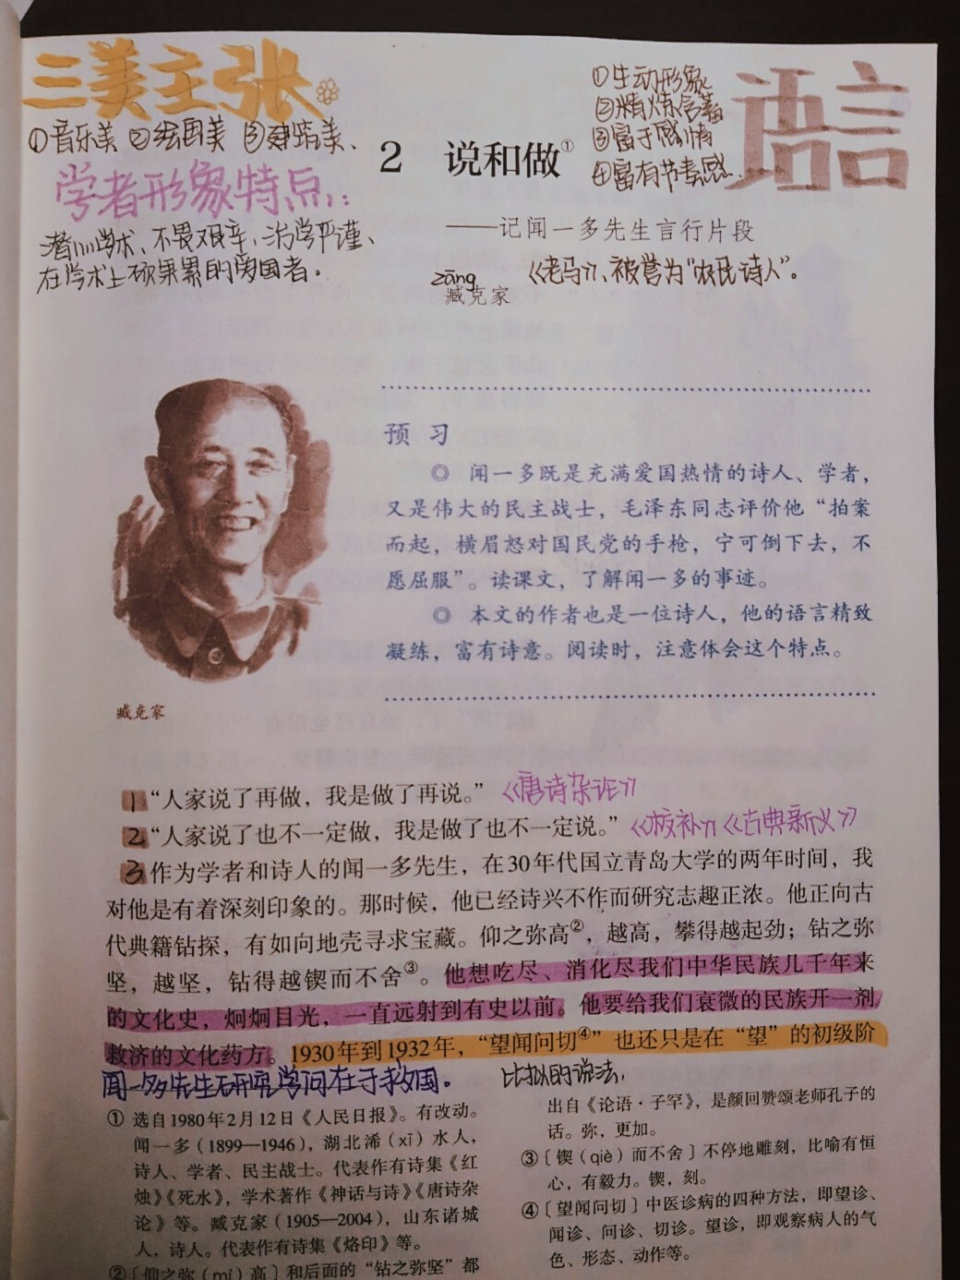 三美主张
①音乐美 ②绘画美 ③建筑美、
学者形象特点:
潜心学术、不畏艰辛、治学严谨、
在学术上硕果累累的爱国者。
①生动形象
②精炼含蓄
③富于感情
④富有节奏感.
语言
2 说和做①
——记闻一多先生言行片段
zāng
臧克家
《老马》,被誉为“农民诗人”。
预 习
◎ 闻一多既是充满爱国热情的诗人、学者,
又是伟大的民主战士,毛泽东同志评价他“拍案
而起,横眉怒对国民党的手枪,宁可倒下去,不
愿屈服”。读课文,了解闻一多的事迹。
◎ 本文的作者也是一位诗人,他的语言精致
凝练,富有诗意。阅读时,注意体会这个特点。
臧克家
1“人家说了再做,我是做了再说。” 《唐诗杂论》
2“人家说了也不一定做,我是做了也不一定说。” 《校补》《古典新义》
3作为学者和诗人的闻一多先生,在30年代国立青岛大学的两年时间,我
对他是有着深刻印象的。那时候,他已经诗兴不作而研究志趣正浓。他正向古
代典籍钻探,有如向地壳寻求宝藏。仰之弥高②,越高,攀得越起劲;钻之弥
坚,越坚,钻得越锲而不舍③。他想吃尽、消化尽我们中华民族几千年来
的文化史,炯炯目光,一直远射到有史以前。他要给我们衰微的民族开一剂
救济的文化药方。1930年到1932年,“望闻问切④”也还只是在“望”的初级阶
闻一多先生研究学问在于救国。
比拟的说法,
① 选自1980年2月12日《人民日报》。有改动。
闻一多(1899—1946),湖北浠(xī)水人,
诗人、学者、民主战士。代表作有诗集《红
烛》《死水》,学术著作《神话与诗》《唐诗杂
论》等。臧克家(1905—2004),山东诸城
人,诗人。代表作有诗集《烙印》等。
②〔仰之弥(mí)高〕和后面的“钻之弥坚”都
出自《论语·子罕》,是颜回赞颂老师孔子的
话。弥,更加。
③〔锲(qiè)而不舍〕不停地雕刻,比喻有恒
心,有毅力。锲,刻。
④〔望闻问切〕中医诊病的四种方法,即望诊、
闻诊、问诊、切诊。望诊,即观察病人的气
色、形态、动作等。